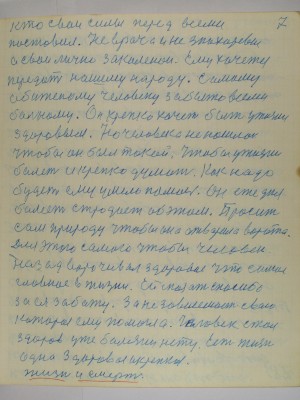 7
кто свои силы перед всеми
поставил. Не врача и не знахаря
а свои лично закалённои. Ему хочется
передать нашему народу. Самому
обиженому человеку забытому всеми
больному. Он крепко хочет быть у жизни
здоровым. Но человека не
чтобы он был такой. Чтобы у жизни
болеть и крепко думать. Как надо
будет ему умело помочь. Он сие дня
болеет страдает об этом. Просит
сам природу чтобы она открыла ворота.
Для этого самого чтобы человек
назад ворочивал здоровье что самое
главное в жизни. Свои спасибо
за забату. За независимость свою
которая ему помогла. Человек стал
здоров уже болезни нету, есть жизнь
одна здоровая крепкая.
жизни и смерть.